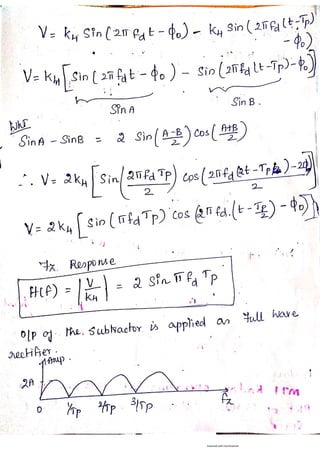 V = k4 Sin(2π fd t - ϕ0) - k4 Sin(2π fd (t-Tp) - ϕ0)
V = k4 [Sin(2π fd t - ϕ0) - Sin(2π fd (t-Tp) - ϕ0)]
Sin A Sin B.
WKT
Sin A - Sin B = 2 Sin(A-B/2) Cos(A+B/2)
∴ V = 2k4 [Sin(2π fd Tp/2) Cos(2π fd (2t-Tp) - 2ϕ0/2)]
V = 2k4 [Sin(π fd Tp) Cos(2π fd. (t - Tp/2) - ϕ0)]
Fr Response
H(f) = |V/k4| = 2 Sin π fd Tp
O/p of the Subtractor is applied as Full Wave
rectifier.
Amp.
2A
0 1/Tp 2/Tp 3/Tp fr